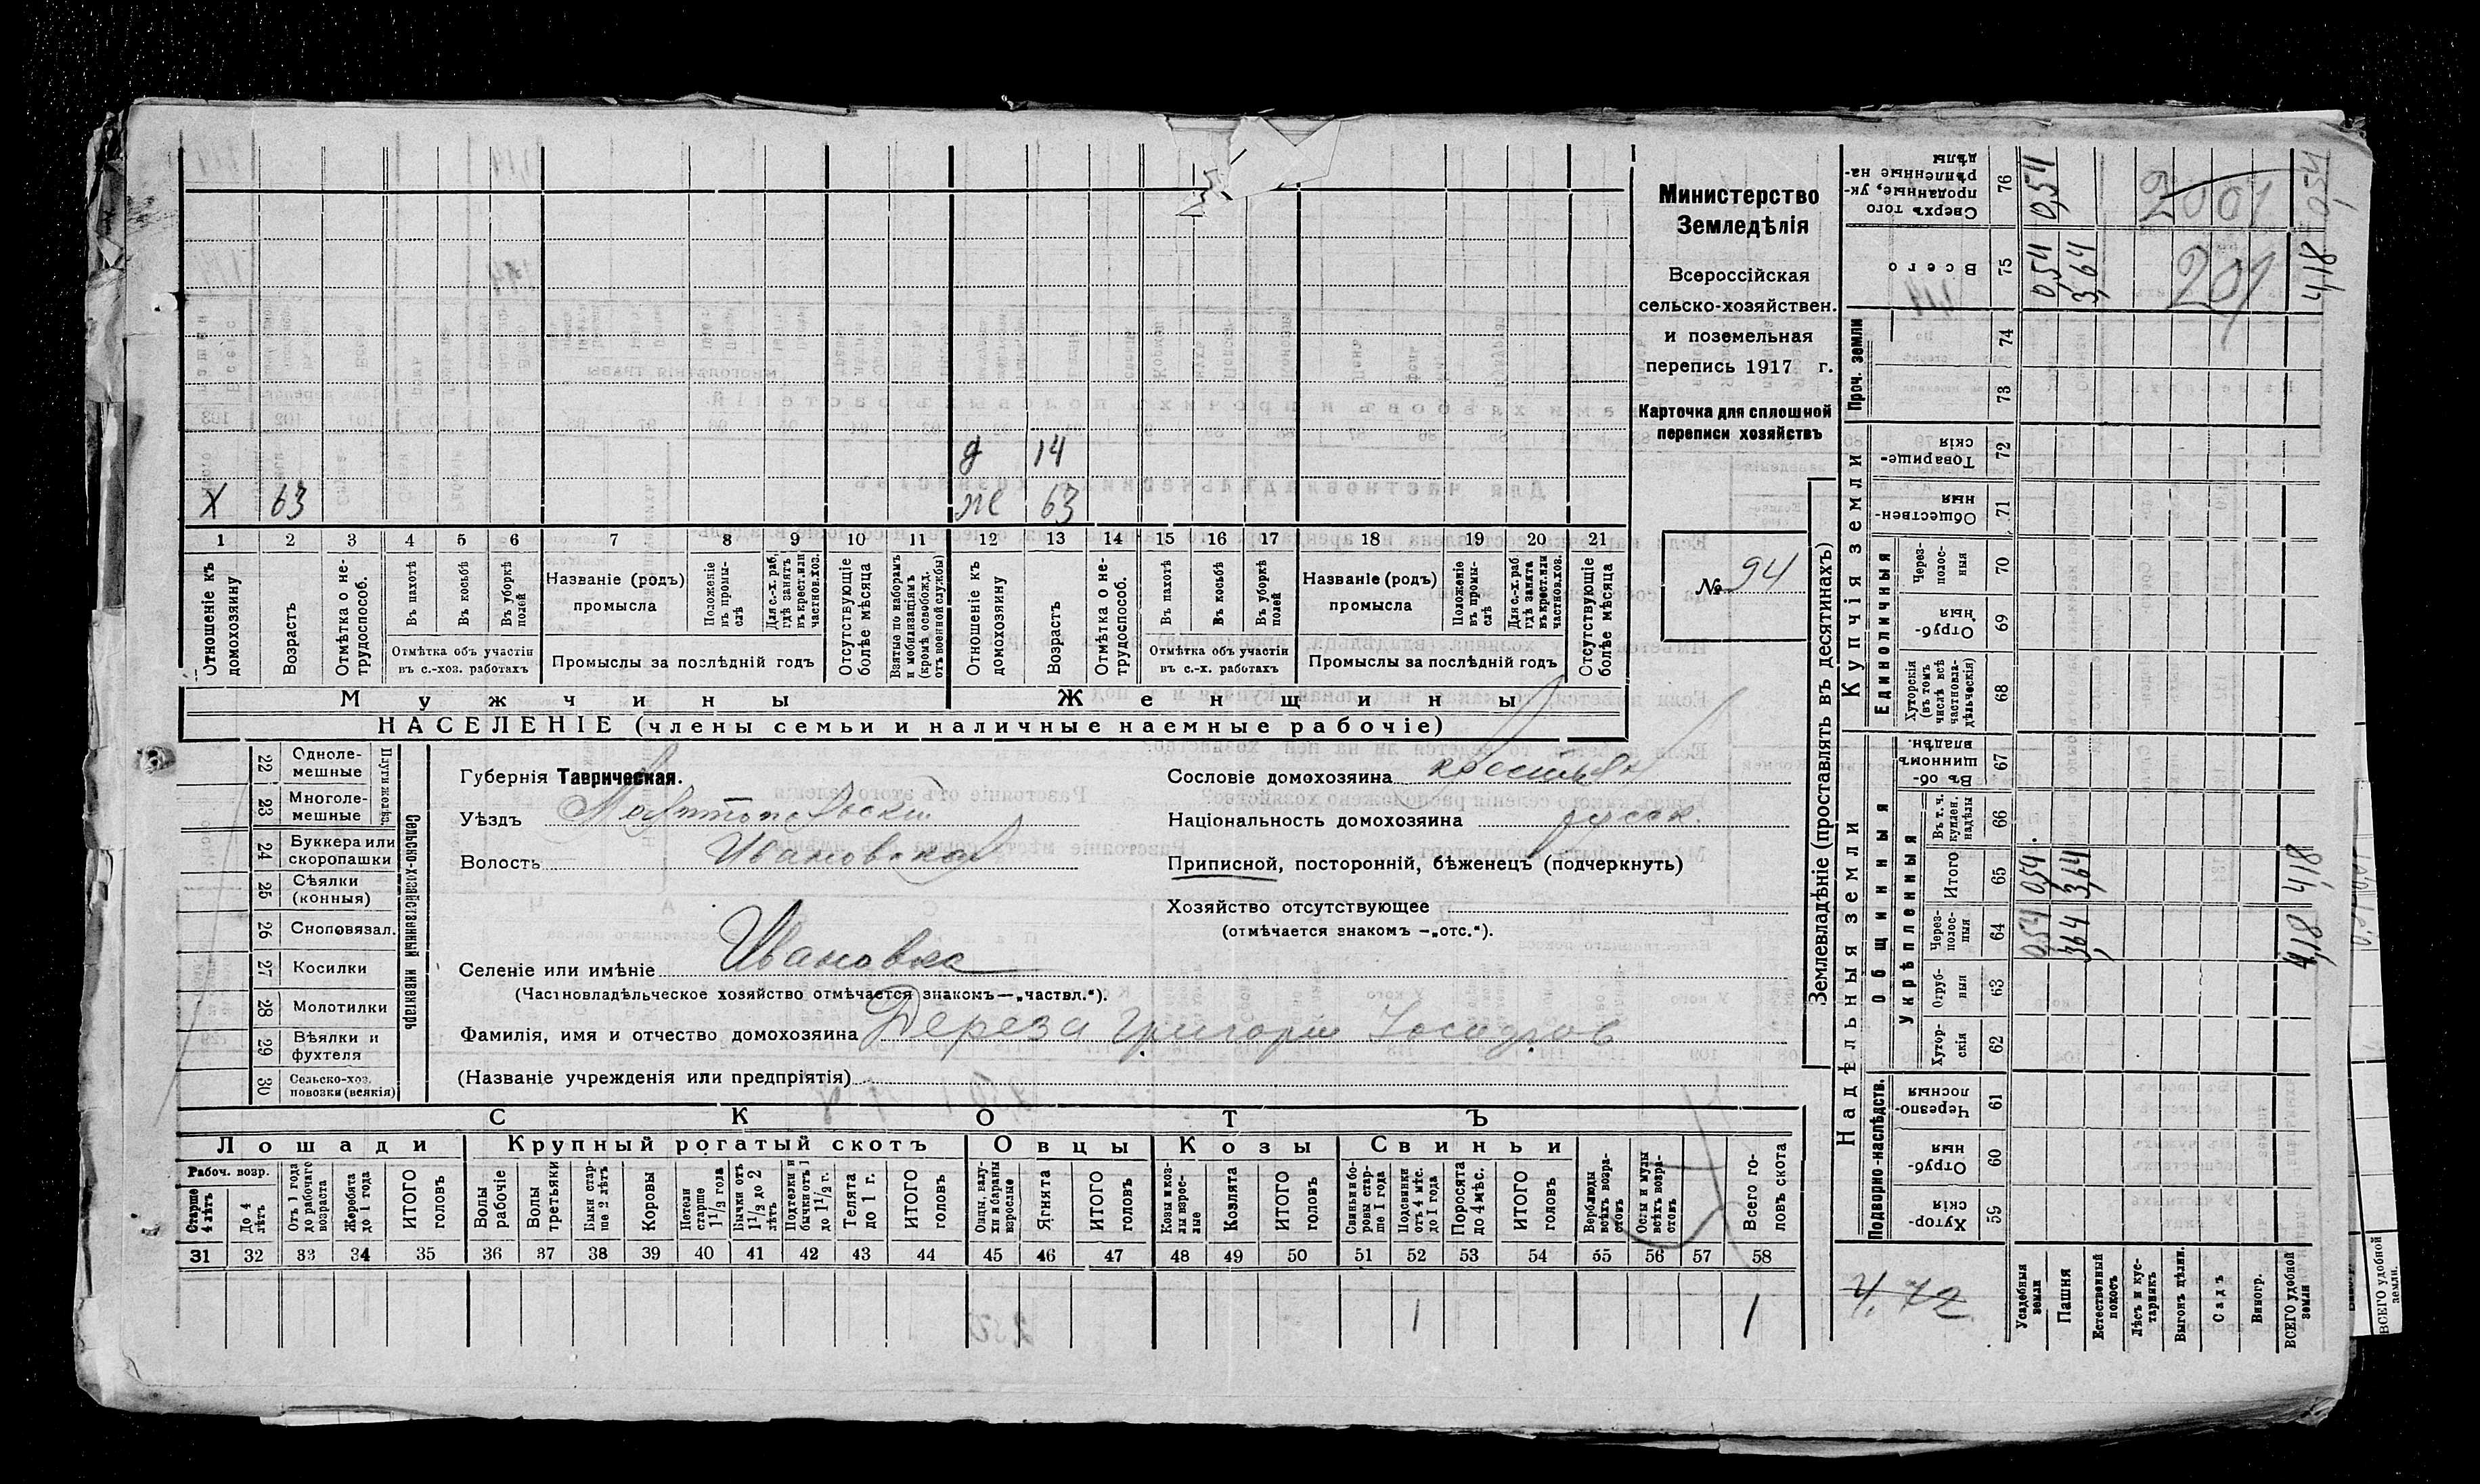 Министерство
Земледѣлія
Всероссійская
сельско-хозяйствен.
и поземельная
перепись 1917 г.
Карточка для сплошной
переписи хозяйствъ
№ 94
д 14
Х 63 ж 63
1 2 3 4 5 6 7 8 9 10 11 12 13 14 15 16 17 18 19 20 21
Отношеніе къ домохозяину
Возрастъ
Отмѣтка о не-трудоспособ.
Въ пахотѣ
Въ косьбѣ
Въ уборкѣ полей
Отмѣтка объ участіи
въ с.-хоз. работахъ
Названіе (родъ)
промысла
Положеніе въ промы-слѣ
Для с.-х. раб, гдѣ занятъ въ крест. или частнов. хоз.
Промыслы за послѣдній годъ
Отсутствующіе болѣе мѣсяца
Взятые по наборамъ и мобилизаціямъ (кромѣ освобожд. отъ военной службы)
Отношеніе къ домохозяину
Возрастъ
Отмѣтка о не-трудоспособ.
Въ пахотѣ
Въ косьбѣ
Въ уборкѣ полей
Отмѣтка объ участіи
въ с.-х. работахъ
Названіе (родъ)
промысла
Положеніе въ промы-слѣ
Для с.-х. раб гдѣ занята въ крест. или частнов. хоз.
Промыслы за послѣдній годъ
Отсутствующіе болѣе мѣсяца
Мужчины Женщины
НАСЕЛЕНІЕ (члены семьи и наличные наемные рабочіе)
22 Однолемешные
23 Многолемешные
24 Буккера или скоропашки
25 Сѣялки (конныя)
26 Сноповязал.
27 Косилки
28 Молотилки
29 Вѣялки и фухтеля
30 Сельско-хоз. повозки (всякія)
Сельско-хозяйственный инвентарь
Губернія Таврическая.
Уѣздъ Мелитопольскій
Волость Ивановская
Селеніе или имѣніе Ивановка
(Частновладѣльческое хозяйство отмѣчается знакомъ—„частвл.“).
Фамилія, имя и отчество домохозяина Дереза Григорій
(Названіе учрежденія или предпріятія)
Сословіе домохозяина крестьян
Національность домохозяина русск.
Приписной, посторонній, бѣженецъ (подчеркнуть)
Хозяйство отсутствующее
(отмѣчается знакомъ —„отс.“).
СКОТЪ
Лошади Крупный рогатый скотъ Овцы Козы Свиньи
Рабоч. возр.
Старше 4 лѣтъ
До 4 лѣтъ
Отъ 1 года до рабочаго возраста
Жеребята до 1 года
ИТОГО головъ
Волы рабочіе
Волы третьяки
Быки стар-ше 2 лѣтъ
Коровы
Нетели старше 1½ года
Бычки отъ 1½ до 2 лѣтъ
Подтелки и бычки отъ 1 до 1½ г.
Телята до 1 г.
ИТОГО головъ
Овцы, валу-хи и бараны взрослые
Ягнята
ИТОГО головъ
Козы и коз-лы взрос-лые
Козлята
ИТОГО головъ
Свиньи и бо-ровы стар-ше 1 года
Подсвинки отъ 4 мѣс. до 1 года
Поросята до 4 мѣс.
ИТОГО головъ
Верблюды всѣхъ возра-стовъ
Ослы и мулы всѣхъ возра-стовъ
Всего го-ловъ скота
31 32 33 34 35 36 37 38 39 40 41 42 43 44 45 46 47 48 49 50 51 52 53 54 55 56 57 58
1 1
Землевладѣніе (проставлять въ десятинахъ)
Надѣльныя земли
Купчія земли
Проч. земли
Подворно-наслѣдств.
Общинныя
Укрѣпленныя
Единоличныя
59 Хутор-скія
60 Отруб-ныя
61 Черезпо-лосныя
62 Хутор-скія
63 Отруб-ныя
64 Через-полос-ныя
65 Итого
66 Въ т. ч. куплен. надѣлы
67 Въ об-щинномъ владѣн.
68 Хуторскія (въ томъ числѣ всѣ частновла-дѣльческія)
69 Отруб-ныя
70 Через-полос-ныя
71 Обществен-ныя
72 Товарище-скія
73
74
75 Всего
76 Сверхъ того проданные, ук-рѣпленные на-дѣлы
Усадебныя земли 0,54 0,54 0,54 0,54
Пашня 3,64 3,64 3,64
Естественный покосъ
Лѣсъ и кус-тарникъ
Выгонъ цѣлин.
Садъ
Виногр.
ВСЕГО удобной земли 4,18 4,18 4,18 0,54
4,72
201
ВСЕГО удобной земли.